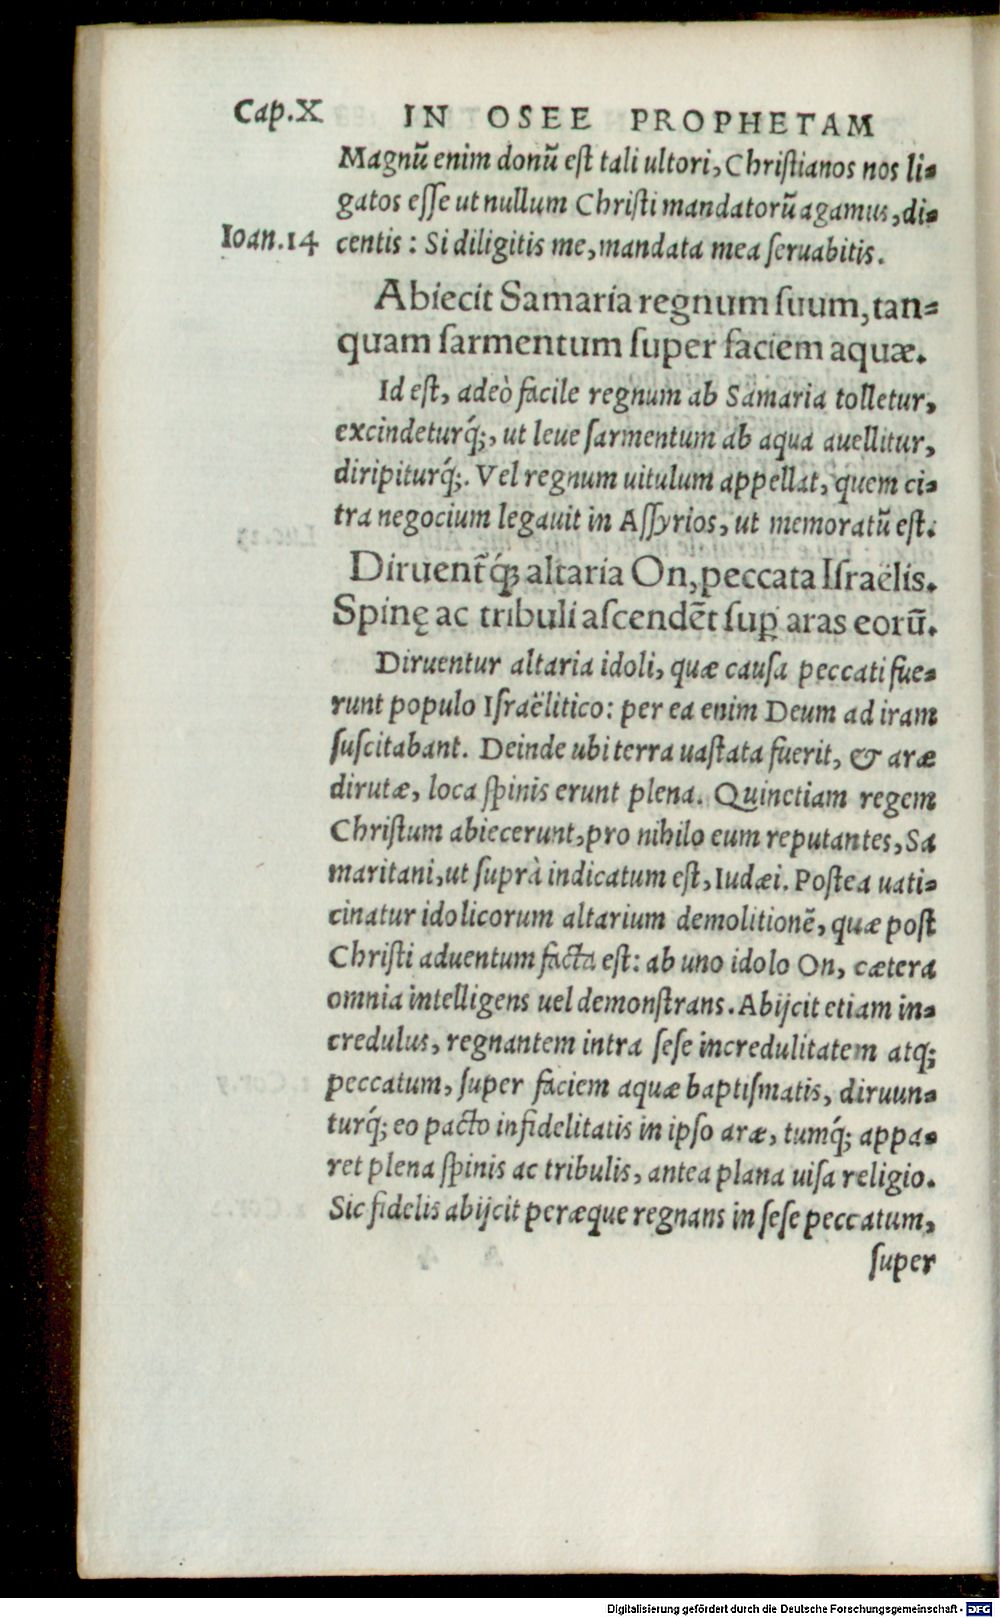 Cap.X IN OSEE PROPHETAM
Magnũ enim donũ eſt tali ultori, Chriſtianos nos li-
gatos eſſe ut nullum Chriſti mandatorũ agamus, di-
Ioan.14 centis : Si diligitis me, mandata mea ſeruabitis.
Abiecit Samaria regnum ſuum, tan=
quam ſarmentum ſuper faciem aquæ.
Id eſt, adeò facile regnum ab Samaria tolletur,
excindeturq́;, ut leue ſarmentum ab aqua auellitur,
diripiturq́;. Vel regnum uitulum appellat, quem ci-
tra negocium legauit in Aſſyrios, ut memoratũ eſt.
Diruent̃q́ꝫ altaria On, peccata Iſraëlis.
Spinę ac tribuli aſcendẽt ſuꝑ aras eorũ.
Diruentur altaria idoli, quæ cauſa peccati fue-
runt populo Iſraëlitico: per ea enim Deum ad iram
ſuſcitabant. Deinde ubi terra uaſtata fuerit, & aræ
dirutæ, loca ſpinis erunt plena. Quinetiam regem
Chriſtum abiecerunt, pro nihilo eum reputantes, Sa
maritani, ut ſuprà indicatum eſt, Iudæi. Poſtea uati-
cinatur idolicorum altarium demolitionẽ, quæ poſt
Chriſti aduentum facta eſt: ab uno idolo On, cætera
omnia intelligens uel demonſtrans. Abijcit etiam in-
credulus, regnantem intra ſeſe incredulitatem atq;
peccatum, ſuper faciem aquæ baptiſmatis, diruun-
turq́; eo pacto infidelitatis in ipſo aræ, tumq́; appa-
ret plena ſpinis ac tribulis, antea plana uiſa religio.
Sic fidelis abijcit peræque regnans in ſeſe peccatum,
ſuper
Digitalisierung gefördert durch die Deutsche Forschungsgemeinschaft - DFG